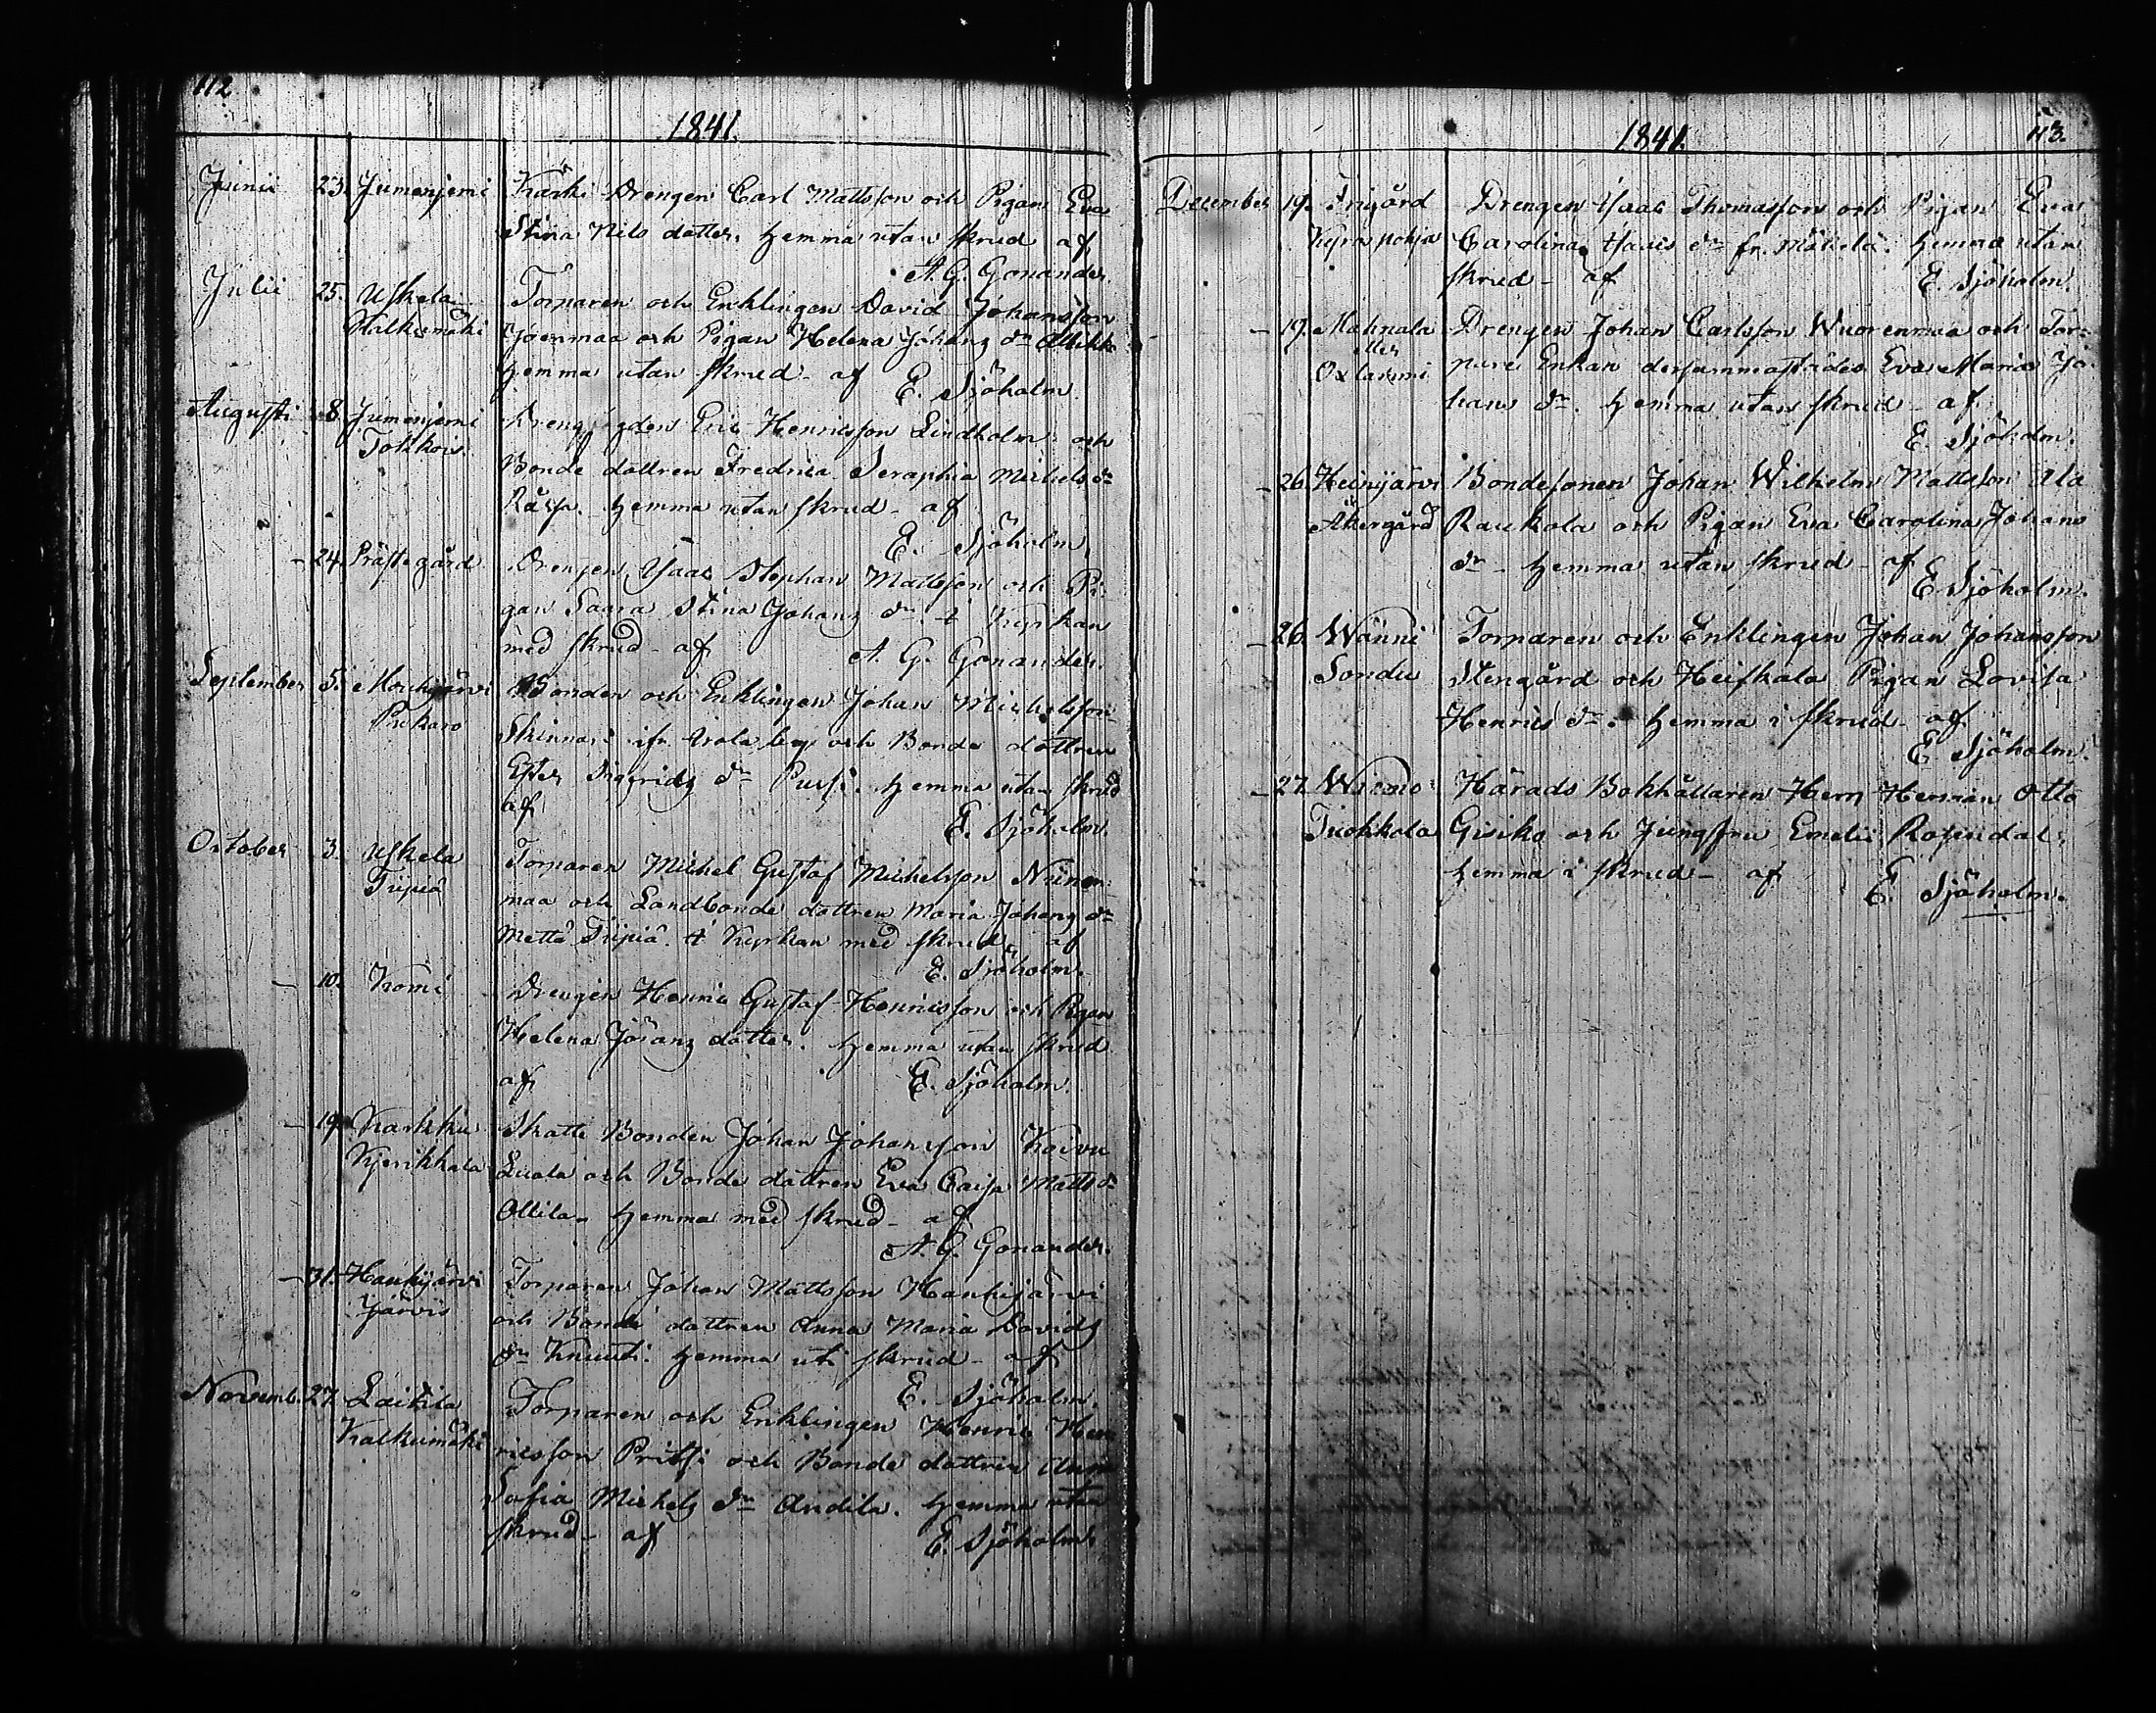 112
1841.
Junii 23. Jumenjemi Karki Drengen Carl Mattsson och Pigan Eva
Stina Nils dotter. hemma utan skrud af
A. G. Gonander.
Julii 25. Uskela Torparen och Enklingen David Johansson
Kalkumäki och Pigan Helena Johans dr
hemma utan skrud - af E. Sjöholm
Augusti 8. Jumenjemi Eric Henricsson Lindholm och
Tokkois Bonde dottren Fredrica Seraphia Michels dr
hemma utan skrud - af
E. Sjöholm
- 24. Prästegård Drengen Isaac Stephan Mattsson och Pi-
gan Saara Stina Johans dr i Kyrkan
med skrud - af A. G. Gonander.
September 5. Mouhijärvi Bonden och Enklingen Johan Michelsson
Pukaro Skinnari ifr. by och Bonde dottren
Ester Sigfrids dr Pussi. hemma utan skrud
af
E. Sjöholm.
October 3. Uskela Torparen Michel Gustaf Michelsson Niinen-
Tupiä maa och Landbonde dottren Maria Johans dr
Tupiä. i Kyrkan med skrud, af
E. Sjöholm.
- 10. Komi Drengen Henric Gustaf Henricsson och Pigan
Helena Jörans dotter. hemma utan skrud
af E. Sjöholm.
- 19. Karkku Skatte Bonden Johan Johansson Koivu
Kjerikkala Luola och Bonde dottren Eva Caisa Matts dr
Ollila. hemma med skrud - af
A. G. Gonander.
- 31. Haukijärvi Torparen Johan Mattsson Haukijärvi
Järvis och Bonde dottren Anna Maria Davids
dr Knuuti. hemma uti skrud - af
E. Sjöholm.
Novemb. 27. Laitila Torparen och Enklingen Henric Hen-
Kalkumäki ricsson Pritsi och Bonde dottren Anna
Sofia Michels dr Andila. hemma utan
skrud - af
E. Sjöholm.
1841. 113.
December 19. Frigård Drengen Isaac Thomasson och Pigan Eva
Kyrapohja Carolina Isacs dr fr. Mätilä. hemma utan
skrud - af E. Sjöholm.
- 19. Mahnala Drengen Johan Carlsson Wuorenmaa och Tor-
eller pare Enkan dersammastädes Eva Maria Jo-
Oxlammi hans dr. hemma utan skrud - af
E. Sjöholm.
- 26. Heinijärvi Bondesonen Johan Wilhelm Mattsson Ala
Åkergård Raukola och Pigan Eva Carolina Johans
dr - hemma utan skrud - af
E. Sjöholm.
- 26. Wänni Torparen och Enklingen Johan Johansson
Sondu Stengård och Heiskala Pigan Lovisa
Henrics dr. hemma i skrud - af
E. Sjöholm.
- 27. Härads Bokhållaren Herr Herman Otto
Tuokkola Gisiko och Jungfru Emelii Rosendal.
hemma i skrud - af
E. Sjöholm.